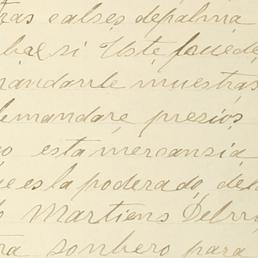 tras calses de palma
bae si Uste puede
mandanle muestras
demandare presios
o esta mercansia
ue es la poderado, de
o Martiens Delrri
ra sonbero para